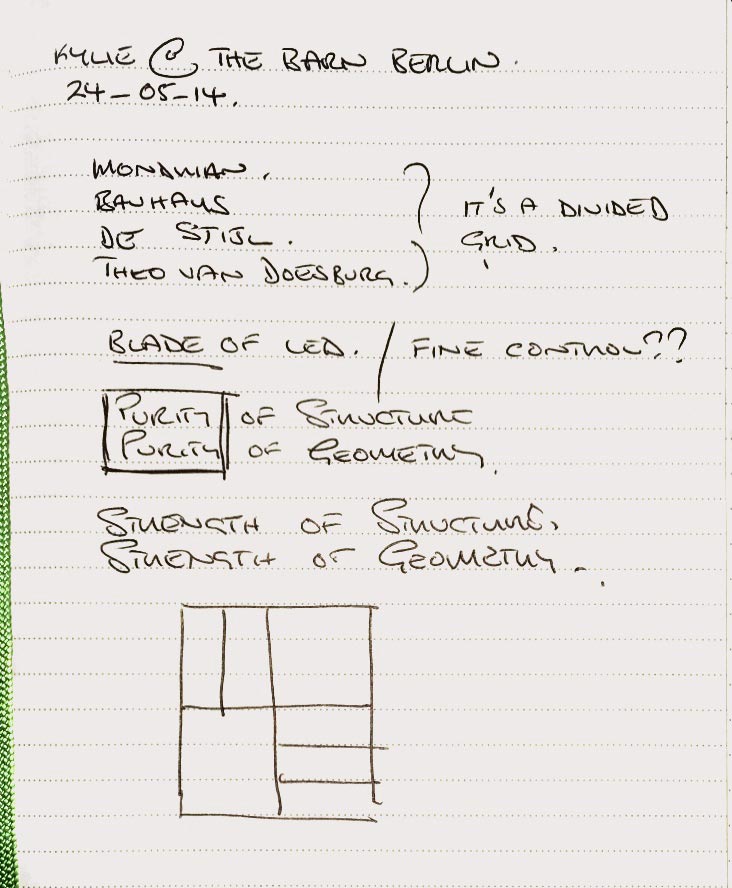 KYLIE @ THE BARN BERLIN.
24-05-14.
MONDRIAN.
BAUHAUS
DE STIJL.
THEO VAN DOESBURG.
IT'S A DIVIDED
GRID.
BLADE OF LED. / FINE CONTROL??
PURITY OF STRUCTURE
PURITY OF GEOMETRY.
STRENGTH OF STRUCTURE.
STRENGTH OF GEOMETRY.